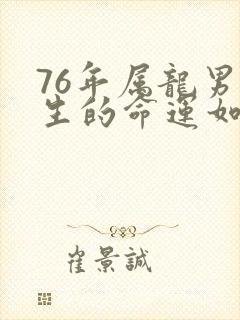 76年属龍男
生的命運如
崔景誠